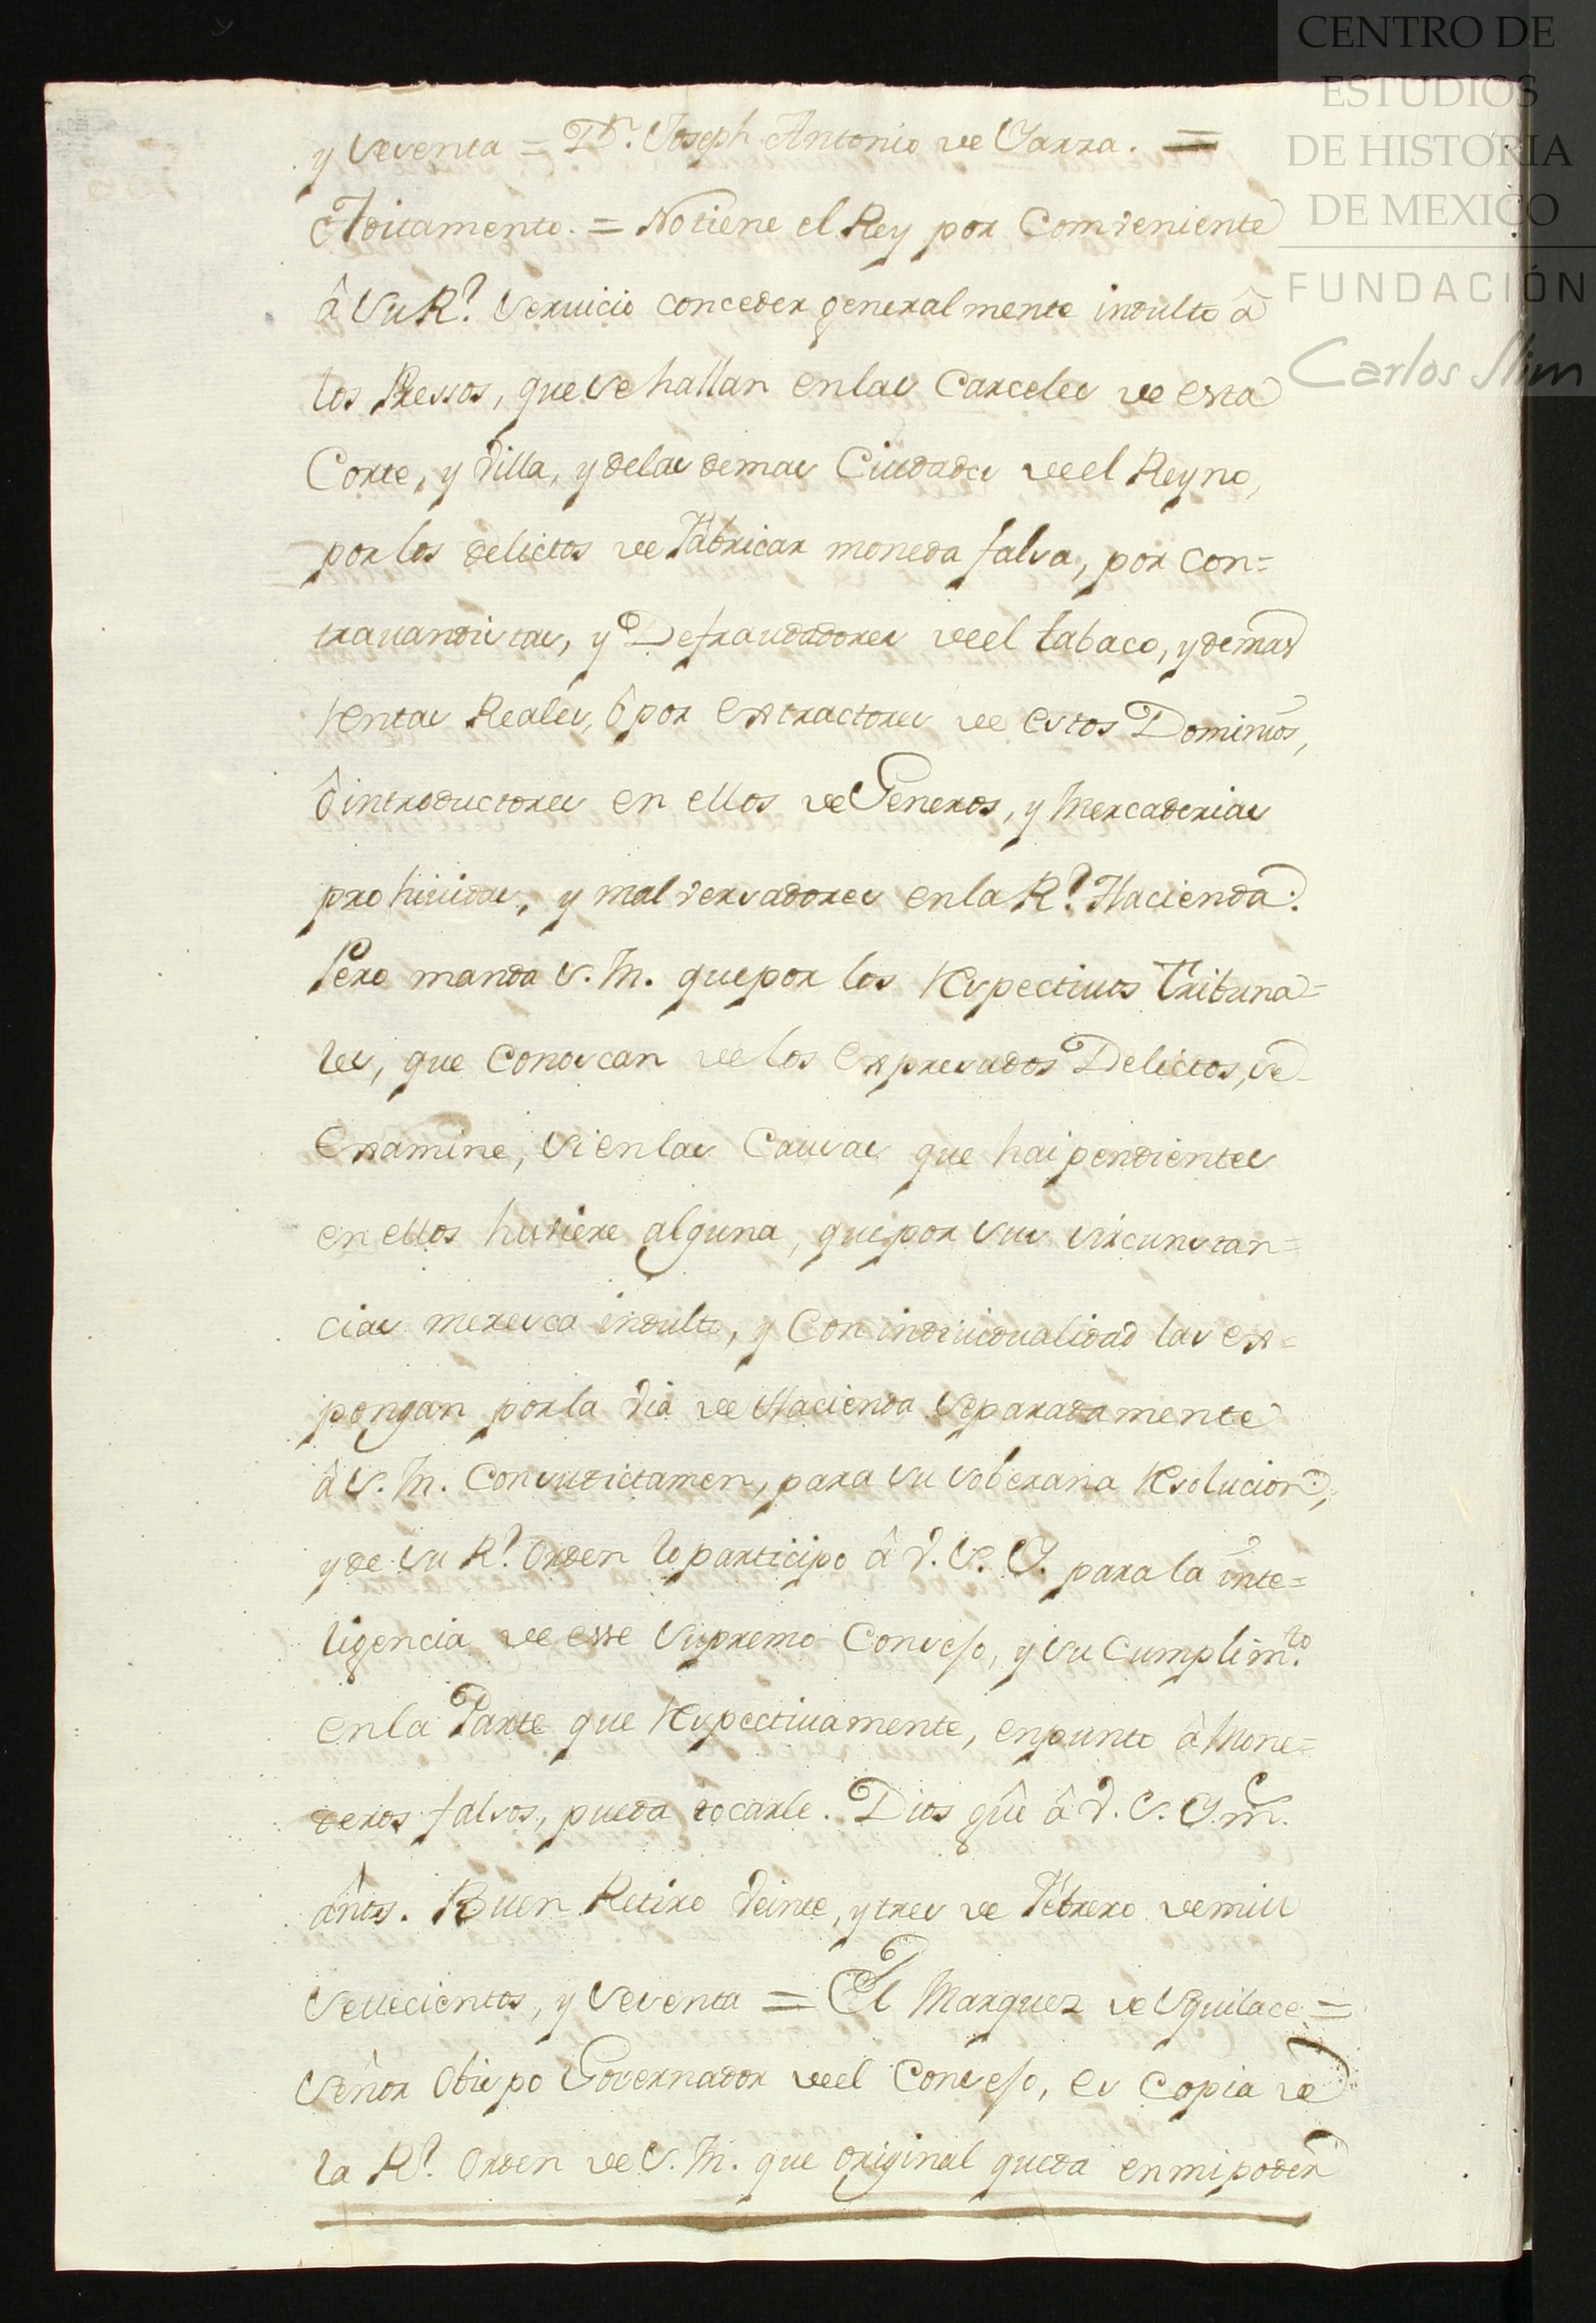 CENTRO DE
ESTUDIOS
DE HISTORIA
DE MEXICO
FUNDACIÓN
Carlos Slim
y sesenta = Dn. Joseph Antonio de Yarza. =
Aditamento. = No tiene el Rey por comveniente
â su Rl. servicio conceder generalmente indulto â
los Pressos, que se hallan en las Carceles de esta
Corte, y Villa, y de las demas Ciudades de el Reyno,
por los delictos de Fabricar moneda falsa, por con=
travandistas, y Defraudadores de el tabaco, y demas
rentas Reales, ô por extractores de estos Dominios,
ô introductores en ellos de Generos, y Mercaderias
prohividas, y malversadores en la Rl. Hacienda.
Pero manda S. M. que por los respectivos Tribuna=
les, que conoscan de los expresados Delictos, se
examine, si en las Causas que hai pendientes
en ellos huviere alguna, que por sus sircunstan=
cias meresca indulto, y con individualidad las ex=
pongan por la via de Hacienda separadamente
â S. M. con su dictamen, para su soberana resolucion,
y de su Rl. Orden lo participo â V. S. Y. para la inte=
ligencia de esse Supremo Consejo, y su cumplimto.
en la Parte que respectivamente, en punto â Mone=
deros falsos, pueda tocarle. Dios gûe â V. S. Y. m.
ânts. Buen Retiro veinte, y tres de Febrero de mill
settecientos, y sesenta = El Marquez de Squilace =
Señor Obispo Governador de el Consejo, es copia de
la Rl. Orden de S. M. que original queda en mi poder